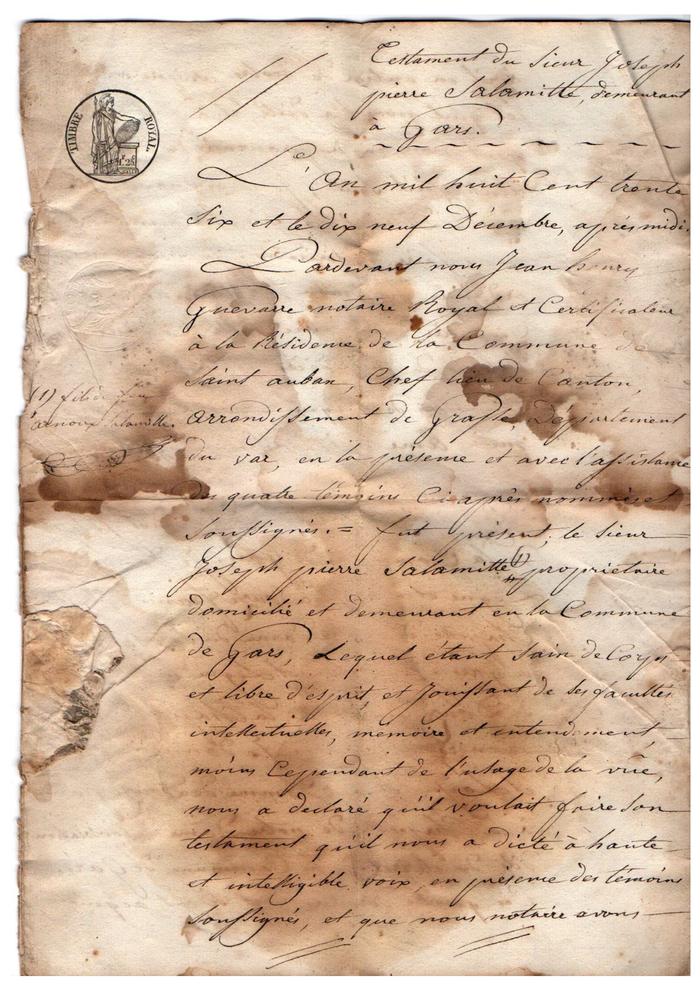 Testament du Sieur Joseph
pierre Salamitte, demeurant
à Gars.
TIMBRE ROYAL
L'An mil huit Cent trente
Six et le dix neuf Décembre, après midi.
Pardevant nous Jean henry
Guevarre notaire Royal et Certificateur
à la Résidence de la Commune de
Saint auban, Chef lieu de Canton,
(1) fils à feu
arrondissement de Grasse, Département
arnoux Salamitte.
du var, en la présence et avec l'assistance
des quatre témoins Ci après nommés et
Soussignés. = fut présent, le Sieur
Joseph pierre Salamitte (1) propriétaire
domicilié et demeurant en la Commune
de Gars, Lequel étant Sain de Corps
et libre d'esprit, et Jouissant de ses facultés
intellectuelles, mémoire et entendement,
moins Cependant de l'usage de la vue,
nous a declaré qu'il voulait faire son
testament qu'il nous a dicté à haute
et intelligible voix, en présence des témoins
soussignés, et que nous notaire avons